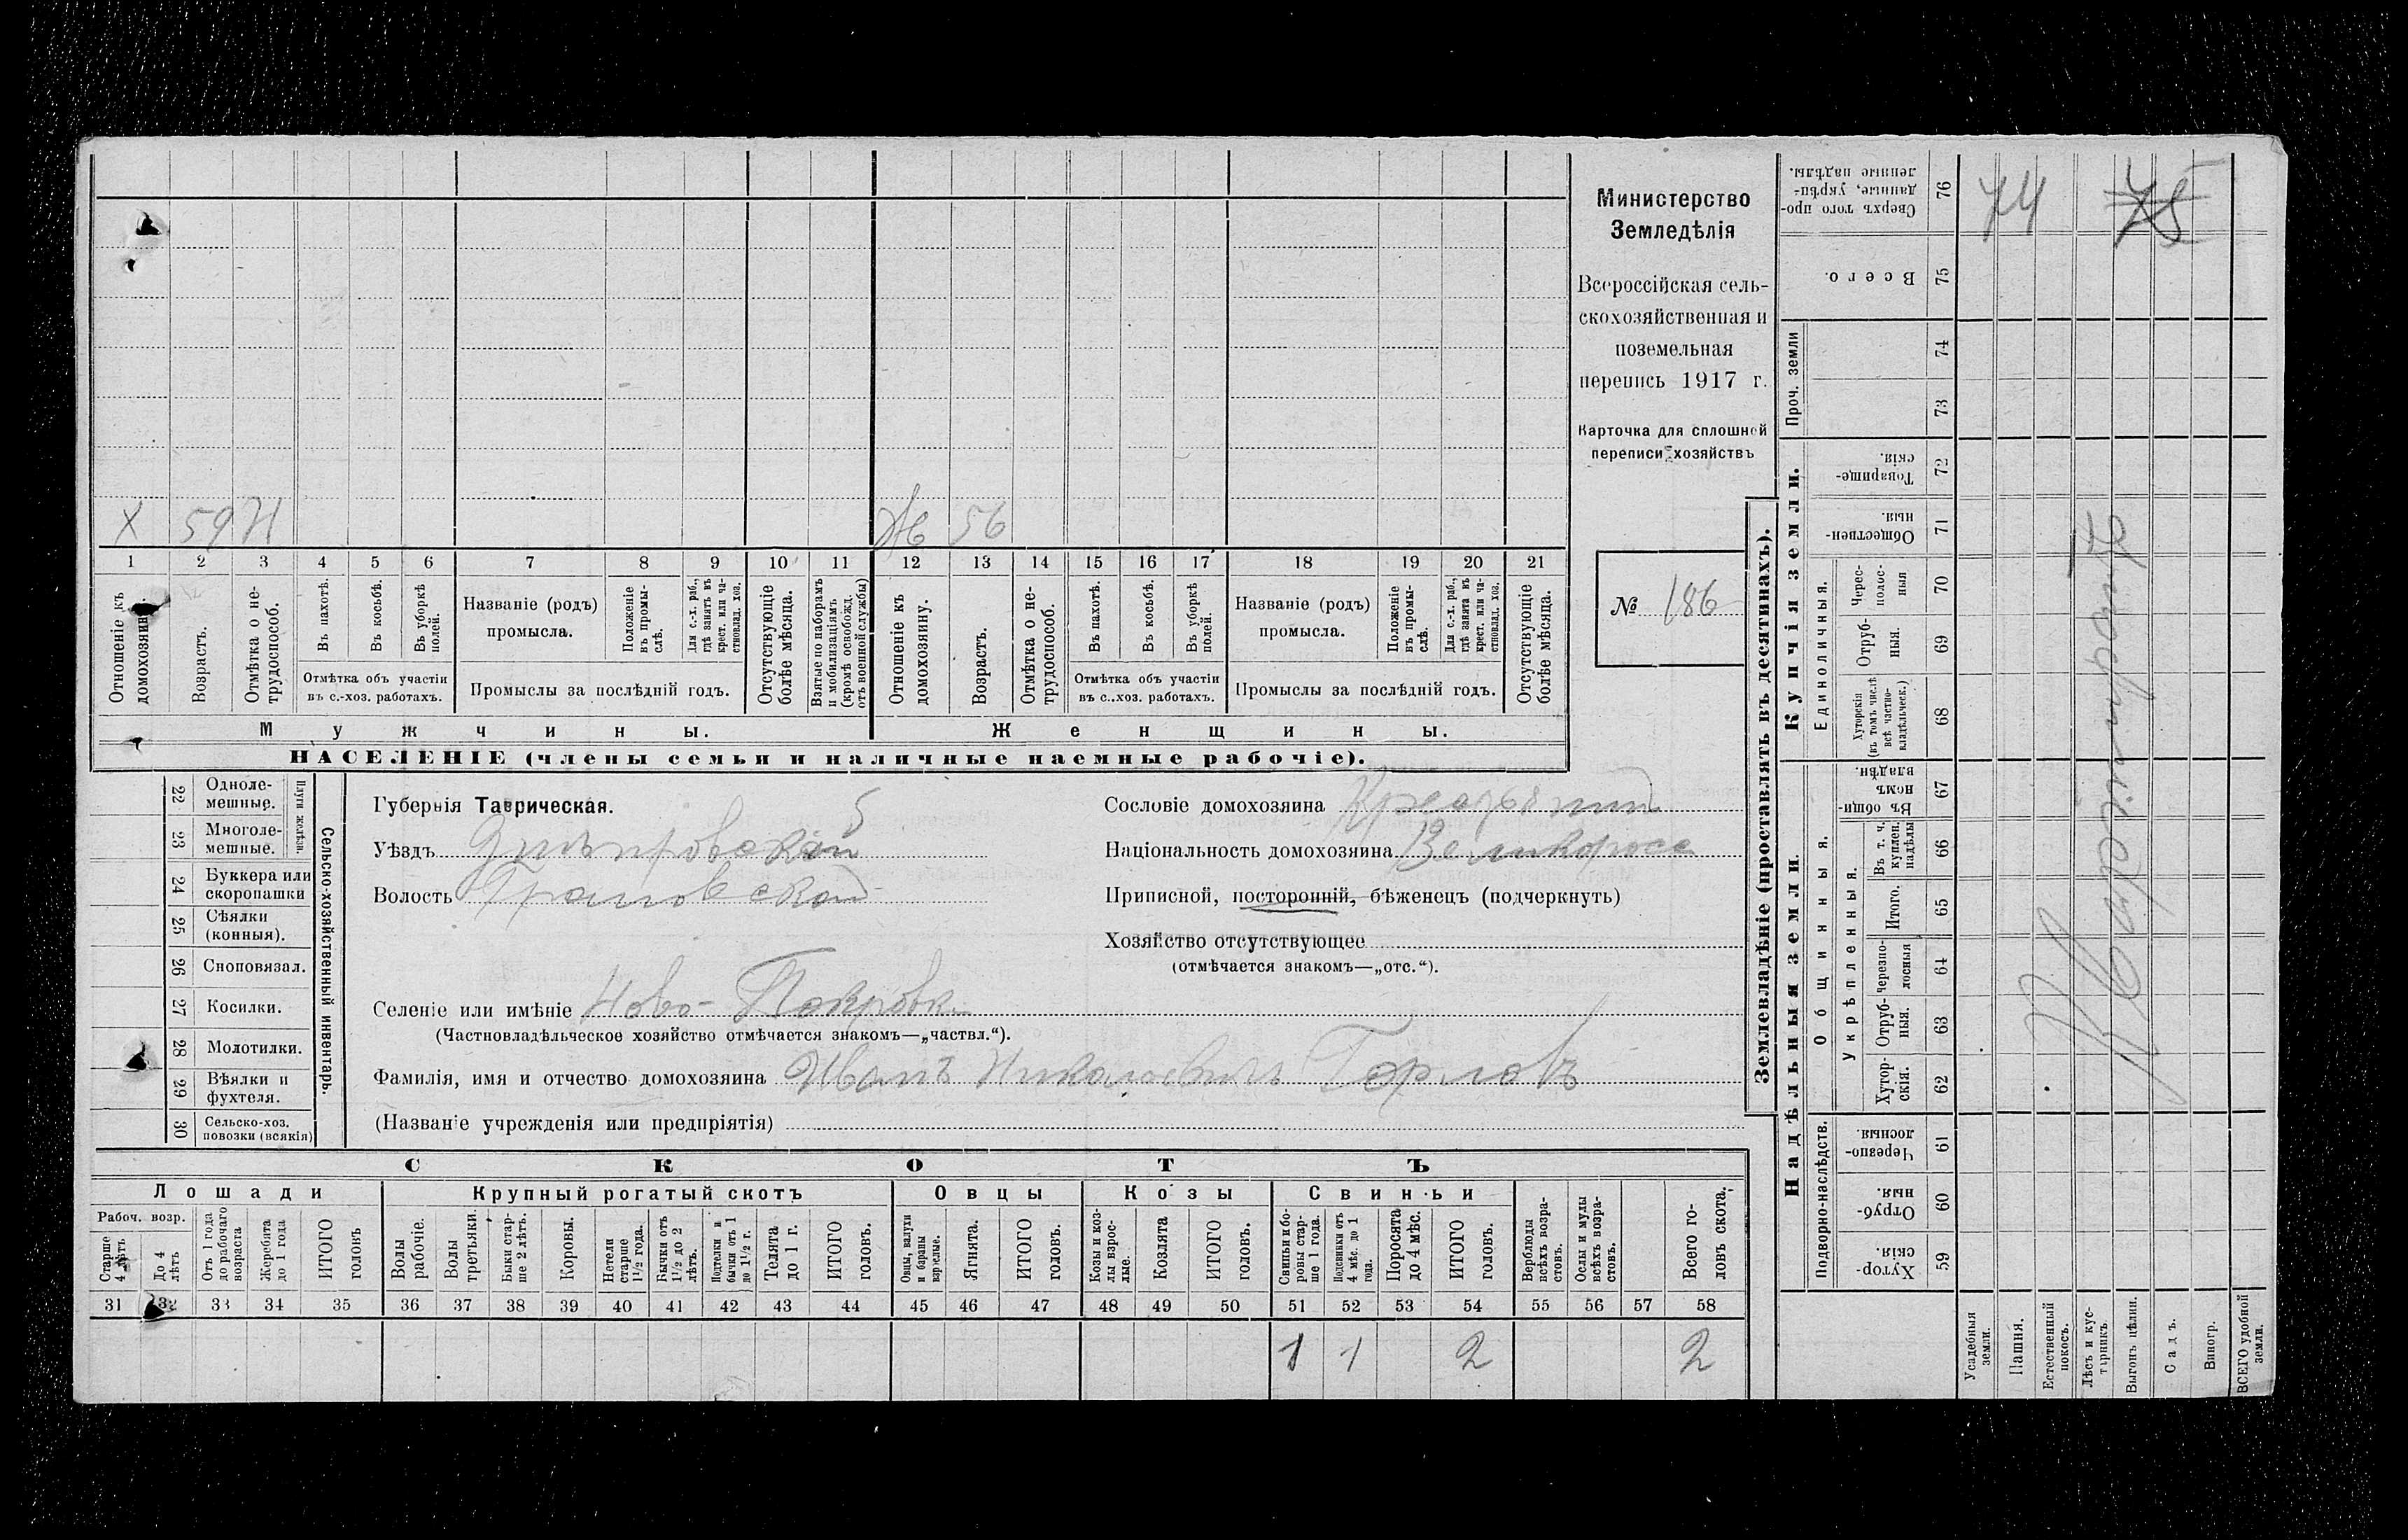 Министерство
Земледѣлія
Всероссійская сель-
скохозяйственная и
поземельная
перепись 1917 г.
Карточка для сплошной
переписи хозяйствъ
№ 186
Х 59 Н
Ж 56
1 2 3 4 5 6 7 8 9 10 11 12 13 14 15 16 17 18 19 20 21
Отношеніе къ домохозяину.
Возрастъ.
Отмѣтка о не-трудоспособ.
Въ пахотѣ.
Въ косьбѣ.
Въ уборкѣ полей.
Отмѣтка объ участіи
въ с.-хоз. работахъ.
Названіе (родъ)
промысла.
Положеніе въ промы-слѣ.
Для с.-х. раб., гдѣ занятъ въ крест. или ча-стновлад. хоз.
Промыслы за послѣдній годъ.
Отсутствующіе болѣе мѣсяца.
Взятые по наборамъ и мобилизаціямъ (кромѣ освобожд. отъ военной службы)
Отношеніе къ домохозяину.
Возрастъ.
Отмѣтка о не-трудоспособ.
Въ пахотѣ.
Въ косьбѣ.
Въ уборкѣ полей.
Отмѣтка объ участіи
въ с..хоз. работахъ.
Названіе (родъ)
промысла.
Положеніе въ промы-слѣ.
Для с.-х. раб., гдѣ занята въ крест. или ча-стновлад. хоз.
Промыслы за послѣдній годъ.
Отсутствующіе болѣе мѣсяца.
Мужчины.
Женщины.
НАСЕЛЕНІЕ (члены семьи и наличные наемные рабочіе).
22 Одноле-мешные.
23 Многоле-мешные.
Плуги желѣзн.
24 Буккера или скоропашки
25 Сѣялки (конныя).
26 Сноповязал.
27 Косилки.
28 Молотилки.
29 Вѣялки и фухтеля.
30 Сельско-хоз. повозки (всякія)
Сельско-хозяйственный инвентарь.
Губернія Таврическая. 5
Уѣздъ Днѣпровскій
Волость
Селеніе или имѣніе Ново-Покровка
(Частновладѣльческое хозяйство отмѣчается знакомъ—„частвл.“).
Фамилія, имя и отчество домохозяина Иванъ Николаевичъ Горловъ
(Названіе учрежденія или предпріятія)
Сословіе домохозяина
Національность домохозяина Великороссъ
Приписной, посторонній, бѣженецъ (подчеркнуть)
Хозяйство отсутствующее
(отмѣчается знакомъ—„отс.“).
СКОТЪ
Лошади
Крупный рогатый скотъ
Овцы
Козы
Свиньи
Рабоч. возр.
Старше 4 лѣтъ
До 4 лѣтъ
Отъ 1 года до рабочаго возраста
Жеребята до 1 года
ИТОГО головъ
Волы рабочіе.
Волы третьяки.
Быки стар-ше 2 лѣтъ.
Коровы.
Нетели старше 1½ года.
Бычки отъ 1½ до 2 лѣтъ.
Подтелки и бычки отъ 1 до 1½ г.
Телята до 1 г.
ИТОГО головъ.
Овцы, валухи и бараны взрослые.
Ягнята.
ИТОГО головъ.
Козы и коз-лы взрос-лые.
Козлята
ИТОГО головъ.
Свиньи и бо-ровы стар-ше 1 года.
Подсвинки отъ 4 мѣс. до 1 года.
Поросята до 4 мѣс.
ИТОГО головъ.
Верблюды всѣхъ возра-стовъ.
Ослы и мулы всѣхъ возра-стовъ.
Всего го-ловъ скота.
31 32 33 34 35 36 37 38 39 40 41 42 43 44 45 46 47 48 49 50 51 52 53 54 55 56 57 58
1 1 2 2
Землевладѣніе (проставлять въ десятинахъ).
Купчія земли.
Надѣльныя земли.
Сверхъ того про-данные, укрѣп-ленные надѣлы. 76
Всего. 75
Проч. земли
74
73
Товарище-скія. 72
Обществен-ныя. 71
Единоличныя.
Черес-полос-ныя 70
Отруб-ныя. 69
Хуторскія (въ томъ числѣ всѣ частно-владѣльческ.) 68
Общинныя.
Въ общин-номъ владѣн. 67
Укрѣпленныя.
Въ т. ч. куплен. надѣлы 66
Итого. 65
Черезпо-лосныя 64
Отруб-ныя. 63
Хутор-скія. 62
Подворно-наслѣдств.
Черезпо-лосныя. 61
Отруб-ныя. 60
Хутор-скія. 59
Усадебныя земли.
Пашня.
Естественный покосъ.
Лѣсъ и кус-тарникъ.
Выгонъ цѣлин.
Садъ.
Виногр.
ВСЕГО удобной земли.
74
75